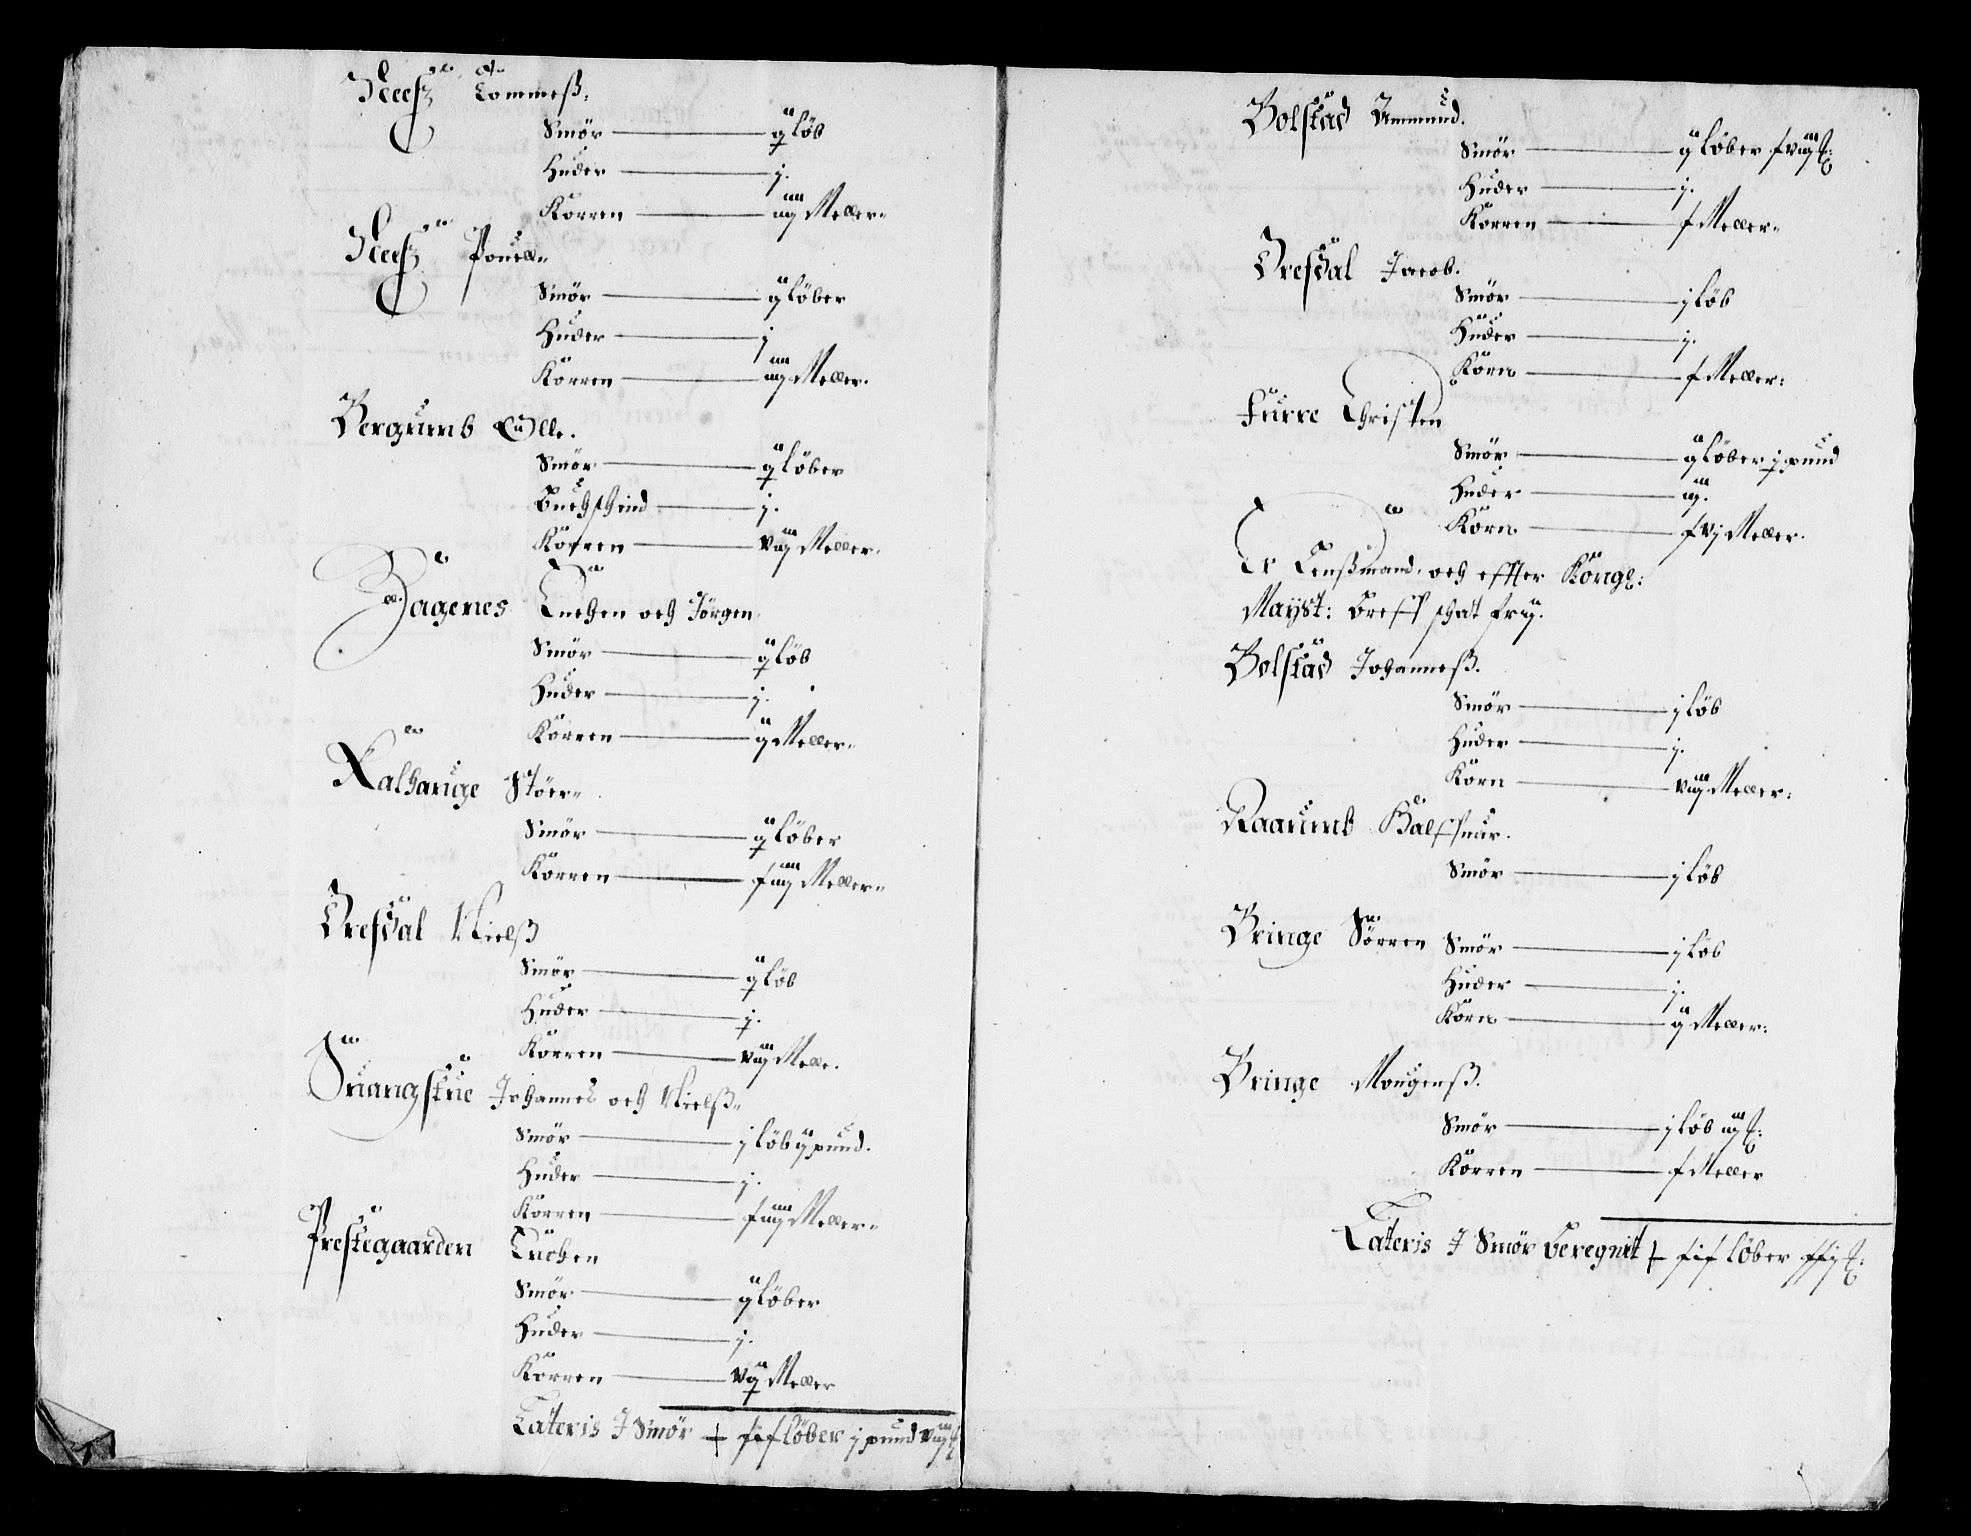 Neesz Tommeß:
Smör ij löb
Huder j.
Korren iiij Meller
Neesz Pouell
Smör ij löber
Huder j
Korren iiij Meller.
Bergumb Olle.
Smör ij löber
Buchschind j.
Korren viij Meller.
Hagenes Luchen och Jörgen
Smör ij löb
Huder j.
Korren ij Meller
Kalhauge Stöer
Smör ij löber
Korren Meller
Oresdal Nielß
Smör ij löb
Huder j.
Korren viij Melle.
Suangstue Johannes och Nielß
Smör j löb ij pund.
Huder j.
Korren Meller
Prestegaarden Luchen
Smör ij löber
Huder j.
Korren vij Meller
Lateris J Smör löber j pund
Bolstad Ammund.
Smör ij löber
Huder j.
Korren x Meller
Oresdal Jacob.
Smör j löb
Huder j.
Korn x Meller:
Furre Christen
Smör ij löber j pund
Huder iij.
Korn xvj Meller.
Er Lenßmand och effter Kongl:
Mayst: breff schat fry.
Bolstad Johanneß.
Smör j löb
Huder j.
Korn viij Meller:
Raaumb Halffuar.
Smör j löb
Bringe Sörren Smör j löb
Huder j.
Korn ij Meller:
Bringe Mougenß.
Smör j löb
Korren x Meller
Lateris J Smör beregnit löber